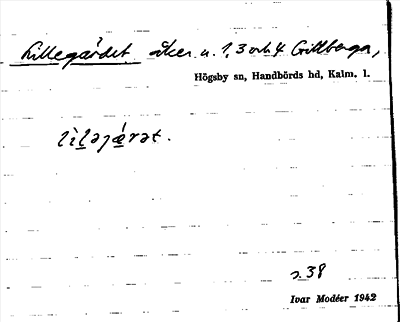 Lillegärdet åker u. 1, 3 och 4 Grillberga,
Högsby sn, Handbörds hd, Kalm. l.
lìləjǽrət.
s. 38
Ivar Modéer 1942